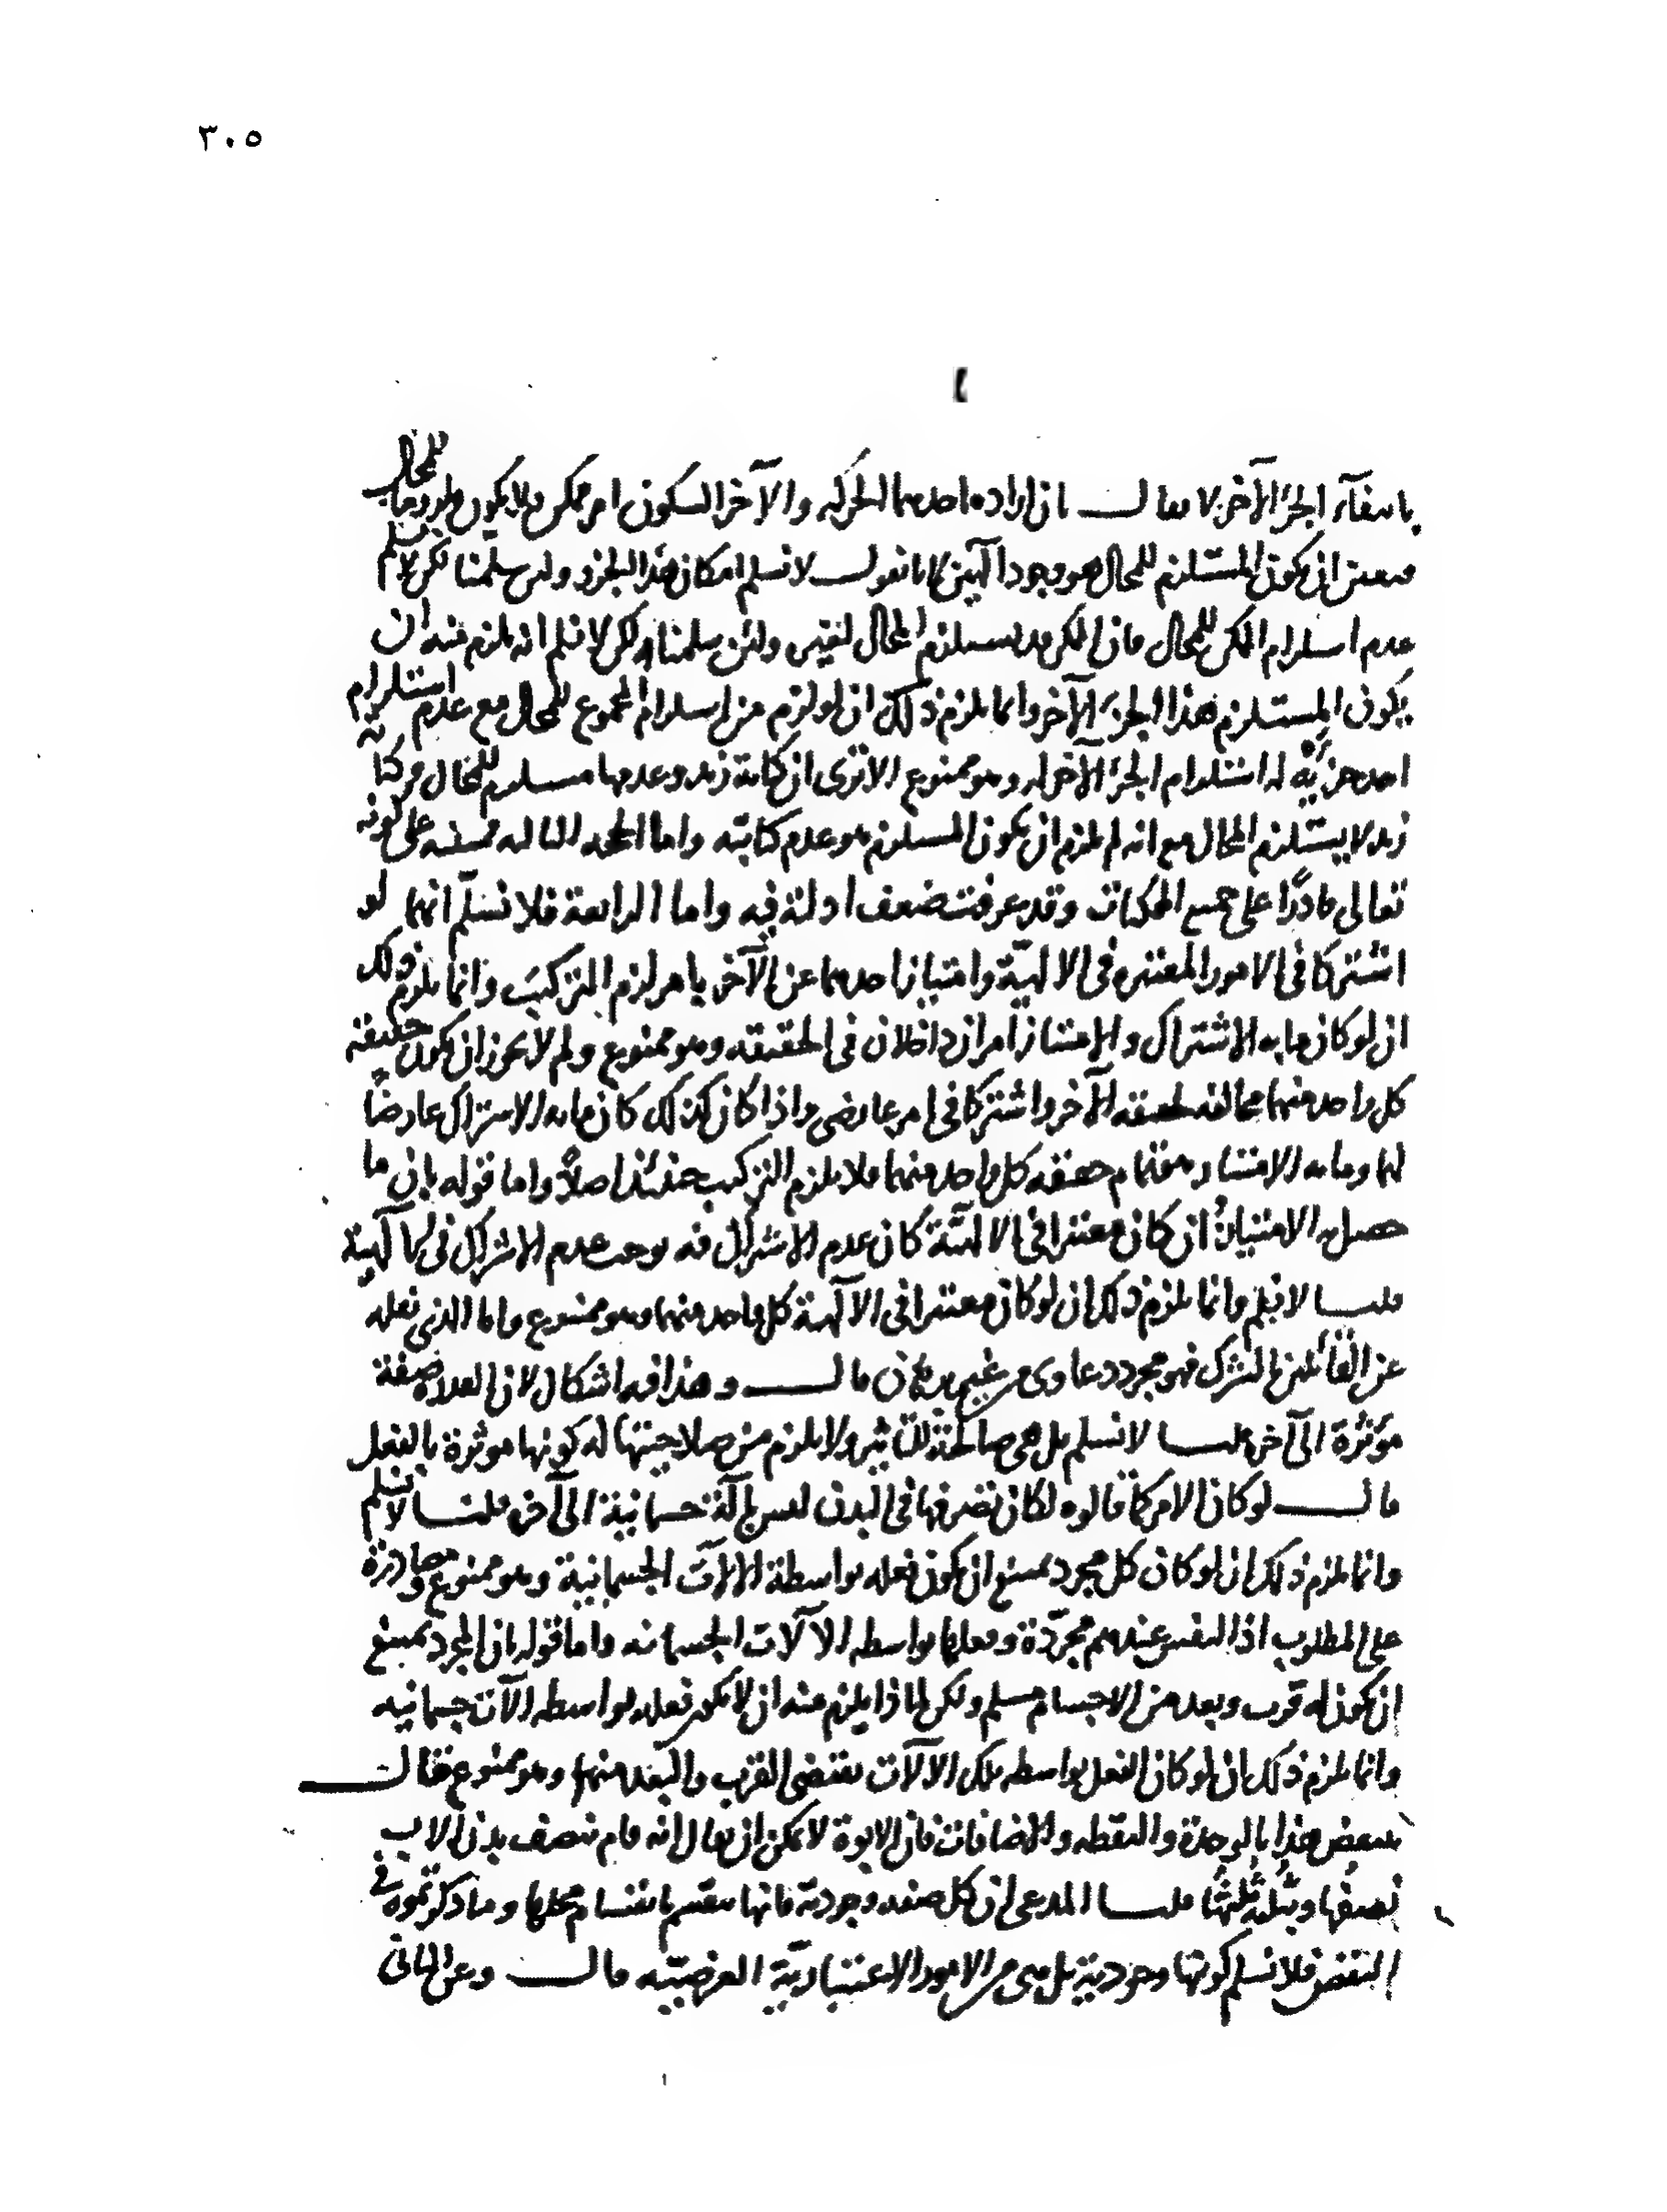 ٣٠٥
بانتفاء الجزء الآخر لا يقال بان ارادة احدهما الحركة والآخر السكون امر ممكن فلا يكون ملزوما للمحال
فتعين ان يكون المستلزم للمحال هو وجود آلهين لانا نقول لا نسلم امكان هذا الجزء ولئن سلمنا لكن لا نسلم
عدم استلزام الممكن للمحال فان الممكن قد يستلزم المحال لغيره ولئن سلمنا ذلك لكن لا نسلم انه يلزم منه ان
يكون المستلزم هذا الجزء الآخر وانما يلزم ذلك ان لو لزم من استلزام المجموع للمحال مع عدم استلزام
احد جزئيه له استلزام الجزء الآخر له وهو ممنوع الا ترى ان كتابة زيد وعدمها مستلزم للمحال وكتابته
زيد لا يستلزم المحال مع انه لم يلزم ان يكون المستلزم هو عدم كتابته واما الحجة الثالثة فمبنية على كونه
تعالى قادرًا على جميع الممكنات وقد عرفت ضعف ادلته فيه واما الرابعة فلا نسلّم انهما لو
اشتركا في الامور المعتبرة في الالهية وامتياز احدهما عن الآخر بامر لزم التركيب وانما يلزم ذلك
ان لو كان ما به الاشتراك والامتياز امران داخلان في الحقيقة وهو ممنوع ولم لا يجوز ان يكون حقيقة
كل واحد منهما مخالفة لحقيقة الآخر واشتركا في امر عارضي واذا كان كذلك كان ما به الاشتراك عارضًا
لهما وما به الامتياز هو تمام حقيقة كل واحد منهما فلا يلزم التركيب حينئذ اصلاً واما قوله بان ما
حصل به الامتياز ان كان معتبرا في الالهيّة كان عدم الاشتراك فيه يوجب عدم الاشتراك في الالهية
قلنا لا نسلم وانما يلزم ذلك ان لو كان معتبرا في الالهية كل واحد منهما وهو ممنوع واما الذي نقله
عن القائلين بالشرك فهو مجرد دعاوى من غير برهان قال وهذا فيه اشكال لان العلاقة صفة
مؤثرة الى آخره قلنا لا نسلم بل هي صالحة للتأثير ولا يلزم من صلاحيتها له كونها موثرة بالفعل
قال لو كان الامر كما قالوه لكان تصرفها في البدن ليس بآلة جسمانية الى آخره قلنا لا نسلم
وانما يلزم ذلك ان لو كان كل مجرد يمتنع ان يكون فعله بواسطة الالات الجسمانية وهو ممنوع ومصادرة
على المطلوب اذ النفس عندهم مجرّدة وفعلها بواسطة الآلات الجسمانية واما قوله بان المجرد يمتنع
ان يكون له قرب وبعد من الاجسام مسلم ولكن لماذا يلزم منه ان لا يكون فعله بواسطة الآت جسمانيه
وانما يلزم ذلك ان لو كان الفعل بواسطة تلك الآلات يقتضى القرب والبعد منها وهو ممنوع قال
ينتقض هذا بالوحدة والنقطة والاضافات فان الابوة لا يمكن ان يقال انه قام بنصف بدن الاب
نصفُها وبثلثه ثلثُها قلنا المدعى ان كل صفة وجودية فانها تنقسم بانقسام محلها وما ذكرتموه في
النقض فلا نسلم كونها وجودية بل هي من الامور الاعتباريّة الفرضيّة قال وعن الثاني